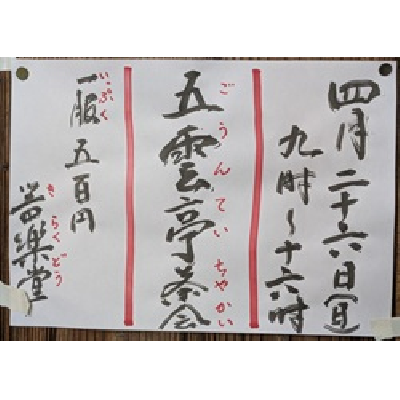 四月二十六日(日)
九時〜十六時
ごうんてい ちゃかい
五雲亭茶会
いっぷく
一服 五百円
きらくどう
喜楽堂